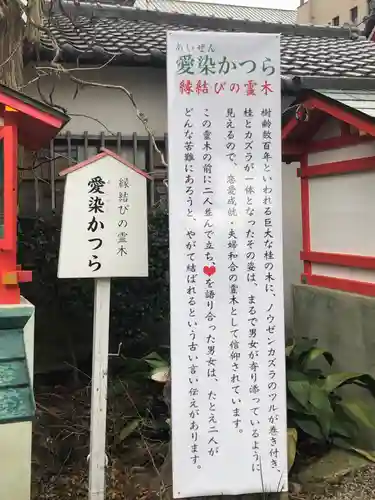 あいぜん
愛染かつら
縁結びの霊木
樹齢数百年といわれる巨大な桂の木に、ノウゼンカズラのツルが巻き付き、
桂とカズラが一体となったその姿は、まるで男女が寄り添っているように
見えるので、恋愛成就・夫婦和合の霊木として信仰されています。
この霊木の前に二人並んで立ち、♥を語り合った男女は、たとえ二人が
どんな苦難にあろうと、やがて結ばれるという古い言い伝えがあります。
縁結びの霊木
愛染かつら